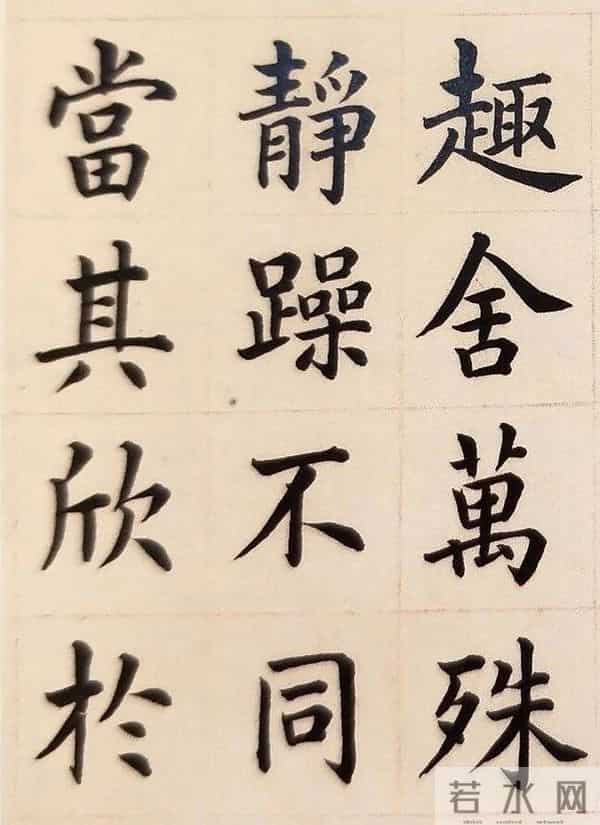 趣舍萬殊
靜躁不同
當其欣於
若水网